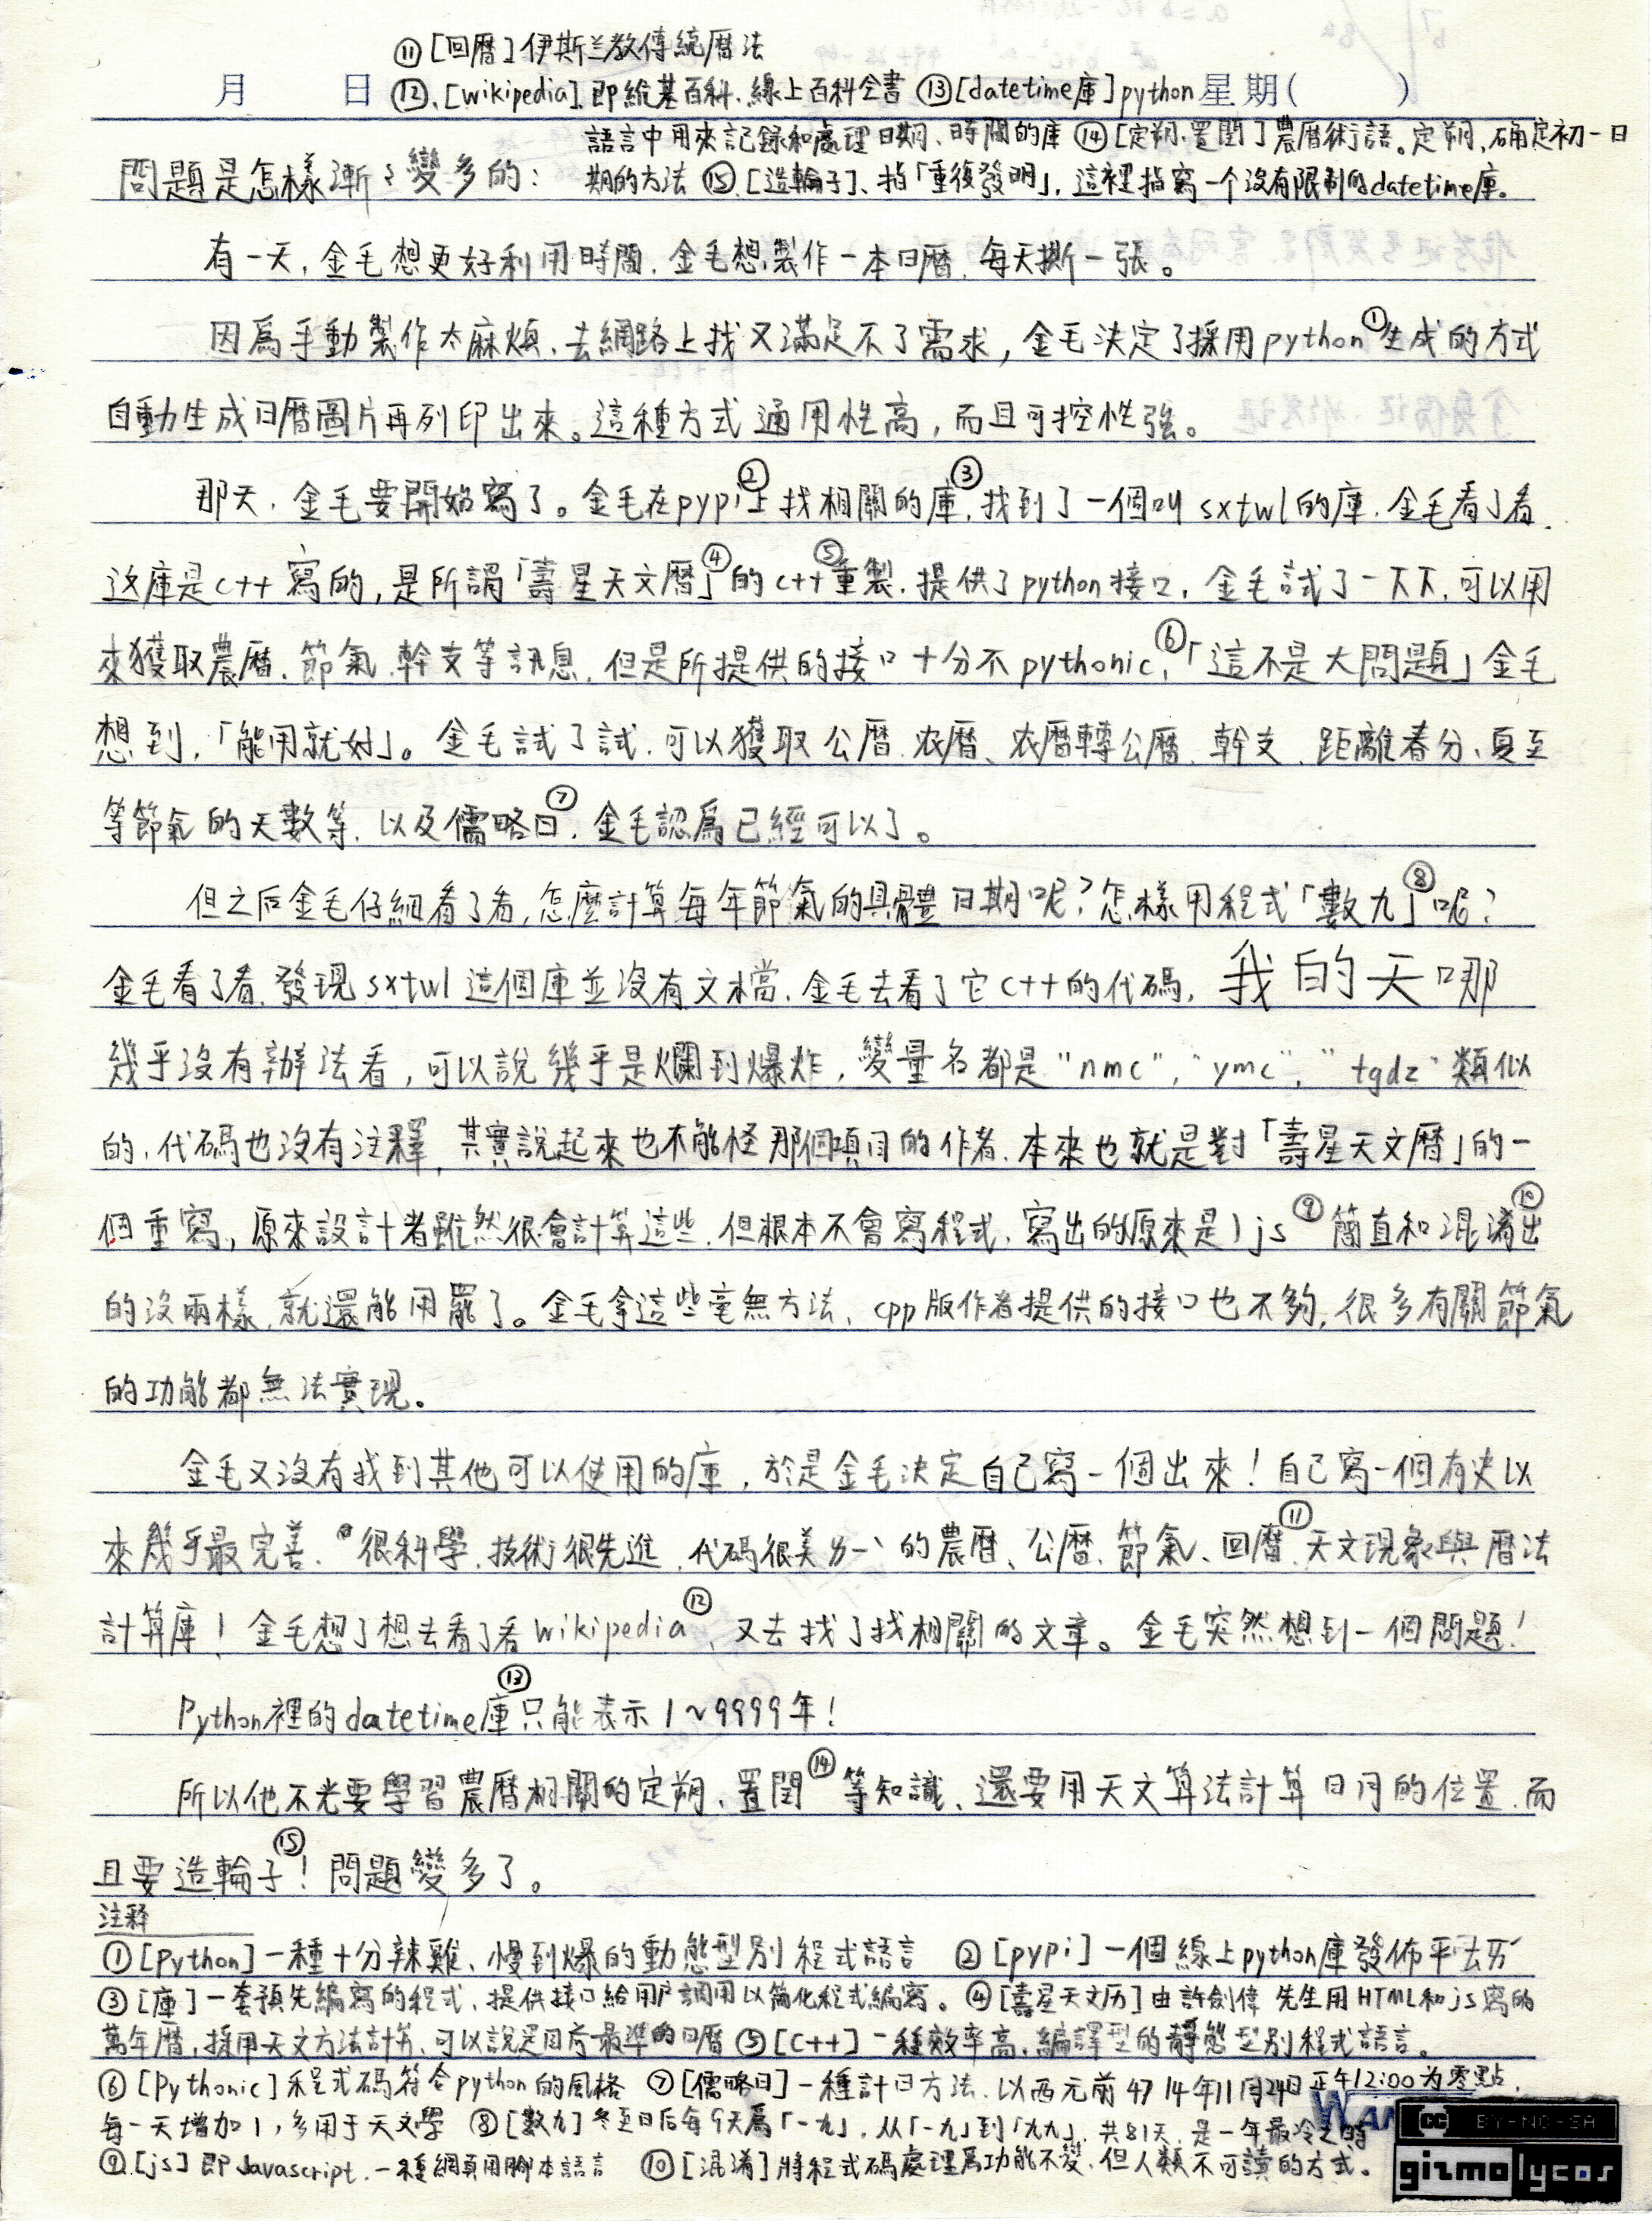 ⑪[回曆]伊斯兰教傳統曆法
月 日 ⑫、[wikipedia]即維基百科、線上百科全書 ⑬[datetime庫]python 星期( )
語言中用來記錄和處理日期、時間的庫 ⑭[定朔、置閏]農曆術語。定朔,确定初一日
問題是怎樣漸〻變多的: 期的方法 ⑮[造輪子]、指「重復發明」,這裡指寫一个没有限制的datetime庫。
有一天,金毛想更好利用時間,金毛想製作一本日曆,每天撕一張。
因爲手動製作太麻煩,去網路上找又滿足不了需求,金毛決定了採用python①生成的方式
自動生成日曆圖片再列印出來。這種方式通用性高,而且可控性強。
那天,金毛要開始寫了。金毛在pypi②上找相關的庫③,找到了一個叫sxtwl的庫,金毛看了看,
这庫是c++寫的,是所謂「壽星天文曆」④的c++⑤重製,提供了python接口,金毛試了一下下,可以用
來獲取農曆、節氣、幹支等訊息,但是所提供的接口十分不pythonic⑥,「這不是大問題」金毛
想到,「能用就好」。金毛試了試,可以獲取公曆、农曆、农曆轉公曆、幹支、距離春分、夏至
等節氣的天數等,以及儒略日⑦,金毛認爲已經可以了。
但之后金毛仔細看了看,怎麼計算每年節氣的具體日期呢?怎樣用程式「數九」⑧呢?
金毛看了看,發現sxtwl這個庫並沒有文檔,金毛去看了它c++的代碼,我的天哪
幾乎沒有辦法看,可以說幾乎是爛到爆炸,變量名都是"nmc","ymc","tgdz"類似
的,代碼也沒有注釋,其實說起來也不能怪那個項目的作者,本來也就是對「壽星天文曆」的一
個重寫,原來設計者雖然很會計算這些,但根本不會寫程式,寫出的(原來是)js⑨簡直和混淆⑩出
的沒兩樣,就還能用罷了。金毛拿這些毫無方法,cpp版作者提供的接口也不夠,很多有關節氣
的功能都無法實現。
金毛又沒有找到其他可以使用的庫,於是金毛決定自己寫一個出來!自己寫一個有史以
來幾乎最完善、很科學,技術很先進,代碼很美ㄌㄧˋ的農曆、公曆、節氣、回曆⑪、天文現象與曆法
計算庫!金毛想了想去看了看wikipedia⑫,又去找了找相關的文章。金毛突然想到一個問題!
Python裡的datetime庫⑬只能表示1~9999年!
所以他不光要學習農曆相關的定朔、置閏⑭等知識、還要用天文算法計算日月的位置,而
且要造輪子⑮!問題變多了。
注释
①[Python]一種十分辣雞、慢到爆的動態型別程式語言 ②[pypi]一個線上python庫發佈平
③[庫]一套預先編寫的程式,提供接口給用戶調用以簡化程式編寫。④[壽星天文历]由許劍偉先生用HTML和js寫的
萬年曆,採用天文方法計算,可以說是目前最準的日曆 ⑤[C++]一種效率高、編譯型的靜態型別程式語言。
⑥[Pythonic]程式碼符合python的風格 ⑦[儒略日]一種計日方法,以西元前4714年11月24日正午12:00为零點,
每一天增加1,多用于天文學 ⑧[數九]冬至日后每9天爲「一九」,从「一九」到「九九」,共81天,是一年最冷之時
⑨[js]即Javascript,一種網頁用腳本語言 ⑩[混淆]將程式碼處理爲功能不變,但人類不可讀的方式。
BY-NC-SA
gizmo lycos